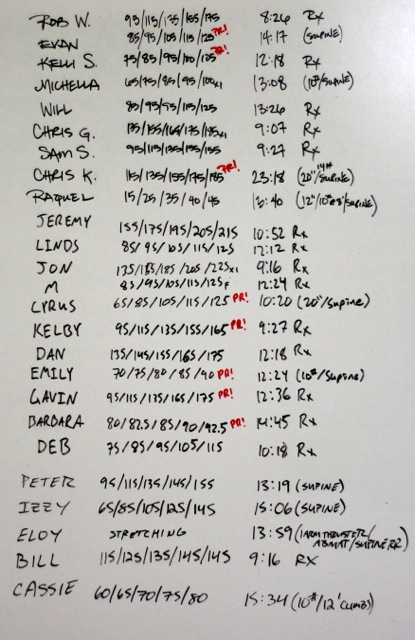 ROB W. 95/115/135/155/175 8:26 Rx
EVAN 85/95/105/115/125 PR! 14:17 (SUPINE)
KELLI S. 75/85/95/100/105 PR! 12:18 Rx
MICHELLA 65/75/85/95/100x1 13:08 (10#/SUPINE)
WILL 85/95/95/115/125 13:26 Rx
CHRIS G. 135/155/165/175/185x1 9:07 Rx
SAM S. 95/115/135/155/155 9:27 Rx
CHRIS K. 115/135/155/175/185 PR! 23:18 (20"/14# SUPINE)
RAQUEL 15/25/35/40/45 16:40 (12"/10#/SUPINE)
JEREMY 155/175/195/205/215 10:52 Rx
LINDS 85/95/105/115/125 12:12 Rx
JON 135/155/185/205/225x1 9:16 Rx
M 85/95/105/115/125F 12:24 Rx
CYRUS 65/85/105/115/125 PR! 10:20 (20"/Supine)
KELBY 95/115/135/155/165 PR! 9:27 Rx
DAN 135/145/155/165/175 12:18 Rx
EMILY 70/75/80/85/90 PR! 12:24 (10#/Supine)
GAVIN 95/115/135/165/175 PR! 12:36 Rx
BARBARA 80/82.5/85/90/92.5 PR! 14:45 Rx
DEB 75/85/95/105/115 10:18 Rx
PETER 95/115/135/145/155 13:19 (SUPINE)
IZZY 65/85/105/125/145 15:06 (SUPINE)
ELOY STRETCHING 13:59 (1 ARM THRUSTER/ABMAT/SUPINE RR)
BILL 115/125/135/145/145 9:16 RX
CASSIE 60/65/70/75/80 15:34 (10#/12' CLIMB)